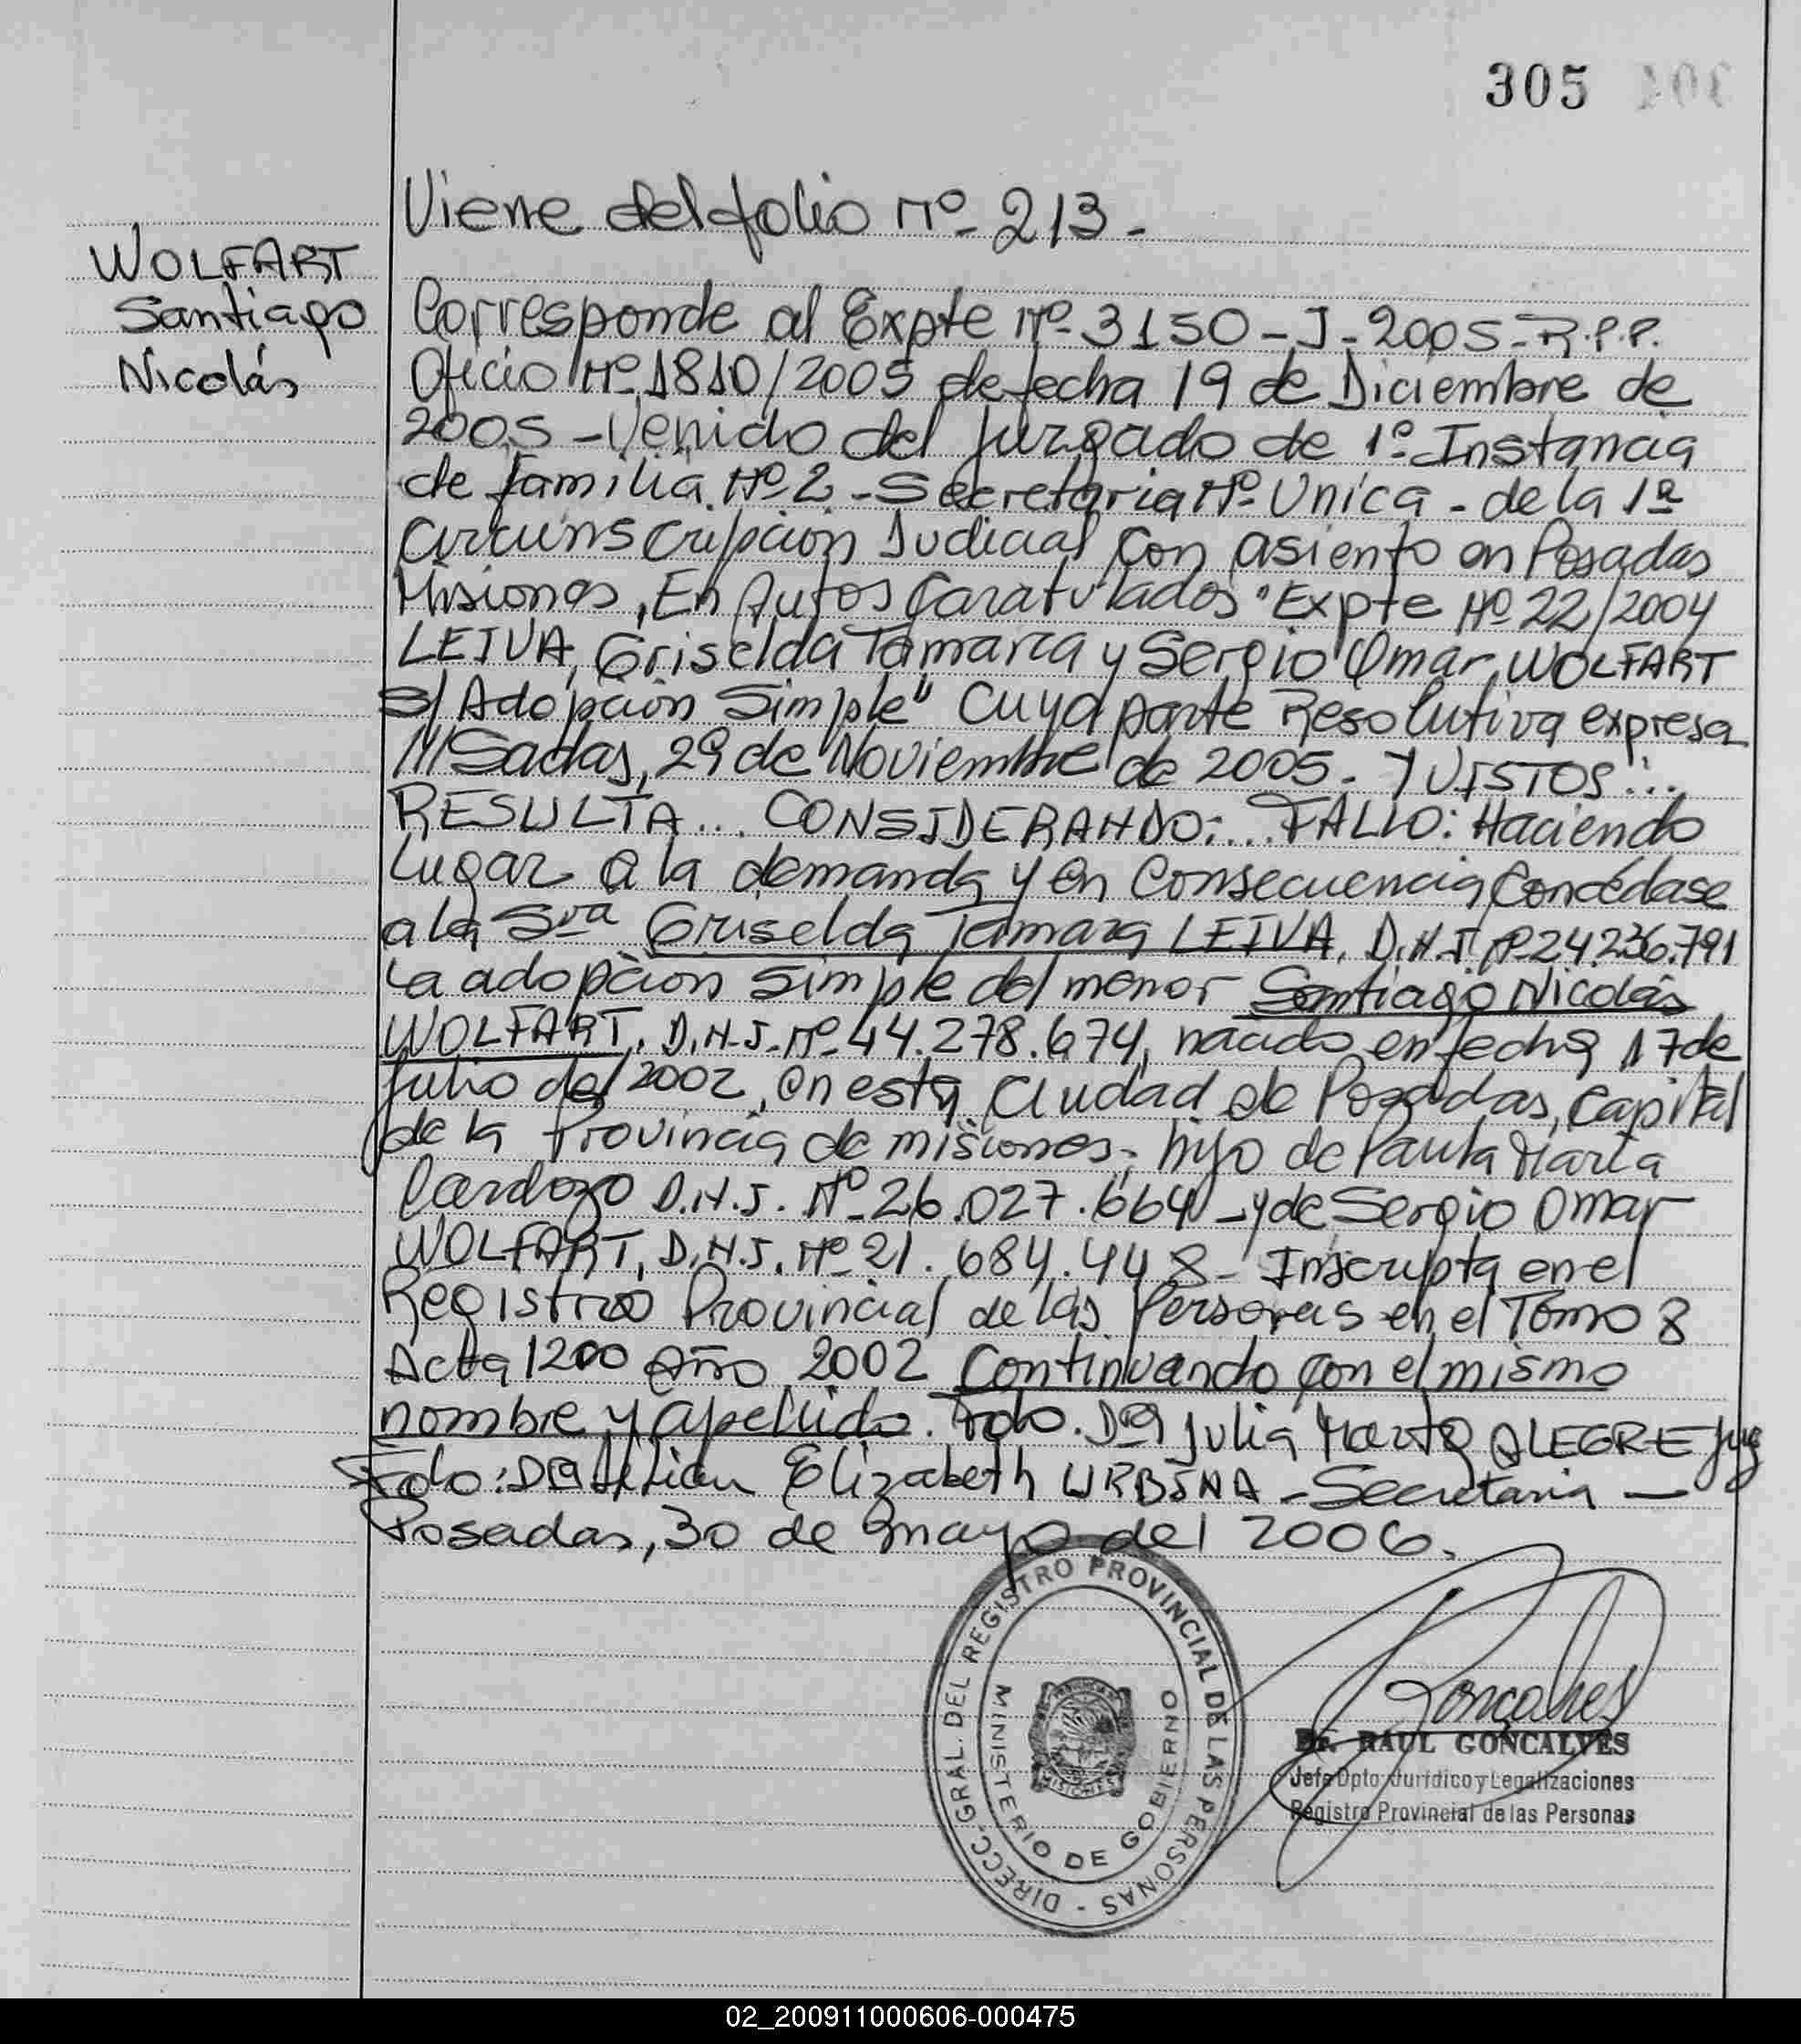 305
Viene del folio Nº 213 -
WOLFART
Santiago
Nicolás
Corresponde al Expte Nº 3150 - J - 2005 - R.P.P.
Oficio Nº 1810/2005 de fecha 19 de Diciembre de
2005 - Venido del Juzgado de 1º Instancia
de familia Nº 2 - Secretaria Nº Unica - de la 1ª
Circunscripción Judicial con asiento en Posadas
Misiones, En Autos Caratulados "Expte Nº 22/2004
LEIVA, Griselda Tamara y Sergio Omar WOLFART
S/ Adopción Simple" Cuya parte Resolutiva expresa
///Sadas, 29 de Noviembre de 2005. Y VISTOS:...
RESULTA... CONSIDERANDO:... FALLO: Haciendo
Lugar a la demanda y en Consecuencia Concédase
a la Sra Griselda Tamara LEIVA, D.N.I. Nº 24.236.791
La adopción simple del menor Santiago Nicolás
WOLFART, D.N.I. Nº 44.278.674, nacido en fecha 17 de
Julio del 2002, en esta Ciudad de Posadas, Capital
de la Provincia de misiones; hijo de Paula María
Cardozo D.N.I. Nº 26.027.664 - y de Sergio Omar
WOLFART, D.N.I. Nº 21.684.448 - Inscripta en el
Registro Provincial de las Personas en el Tomo 8
Acta 1200 Año 2002 Continuando con el mismo
nombre y apellido. Fdo. Dra Julia Marta ALEGRE Juez
Fdo: Dra Lilian Elizabeth URBINA - Secretaria —
Posadas, 30 de mayo del 2006.
DIRECC. GRAL. DEL REGISTRO PROVINCIAL DE LAS PERSONAS -
MINISTERIO DE GOBIERNO
MISIONES
Goncalves
Dr. RAUL GONCALVES
Jefe Dpto. Jurídico y Legalizaciones
Registro Provincial de las Personas
02_200911000606-000475